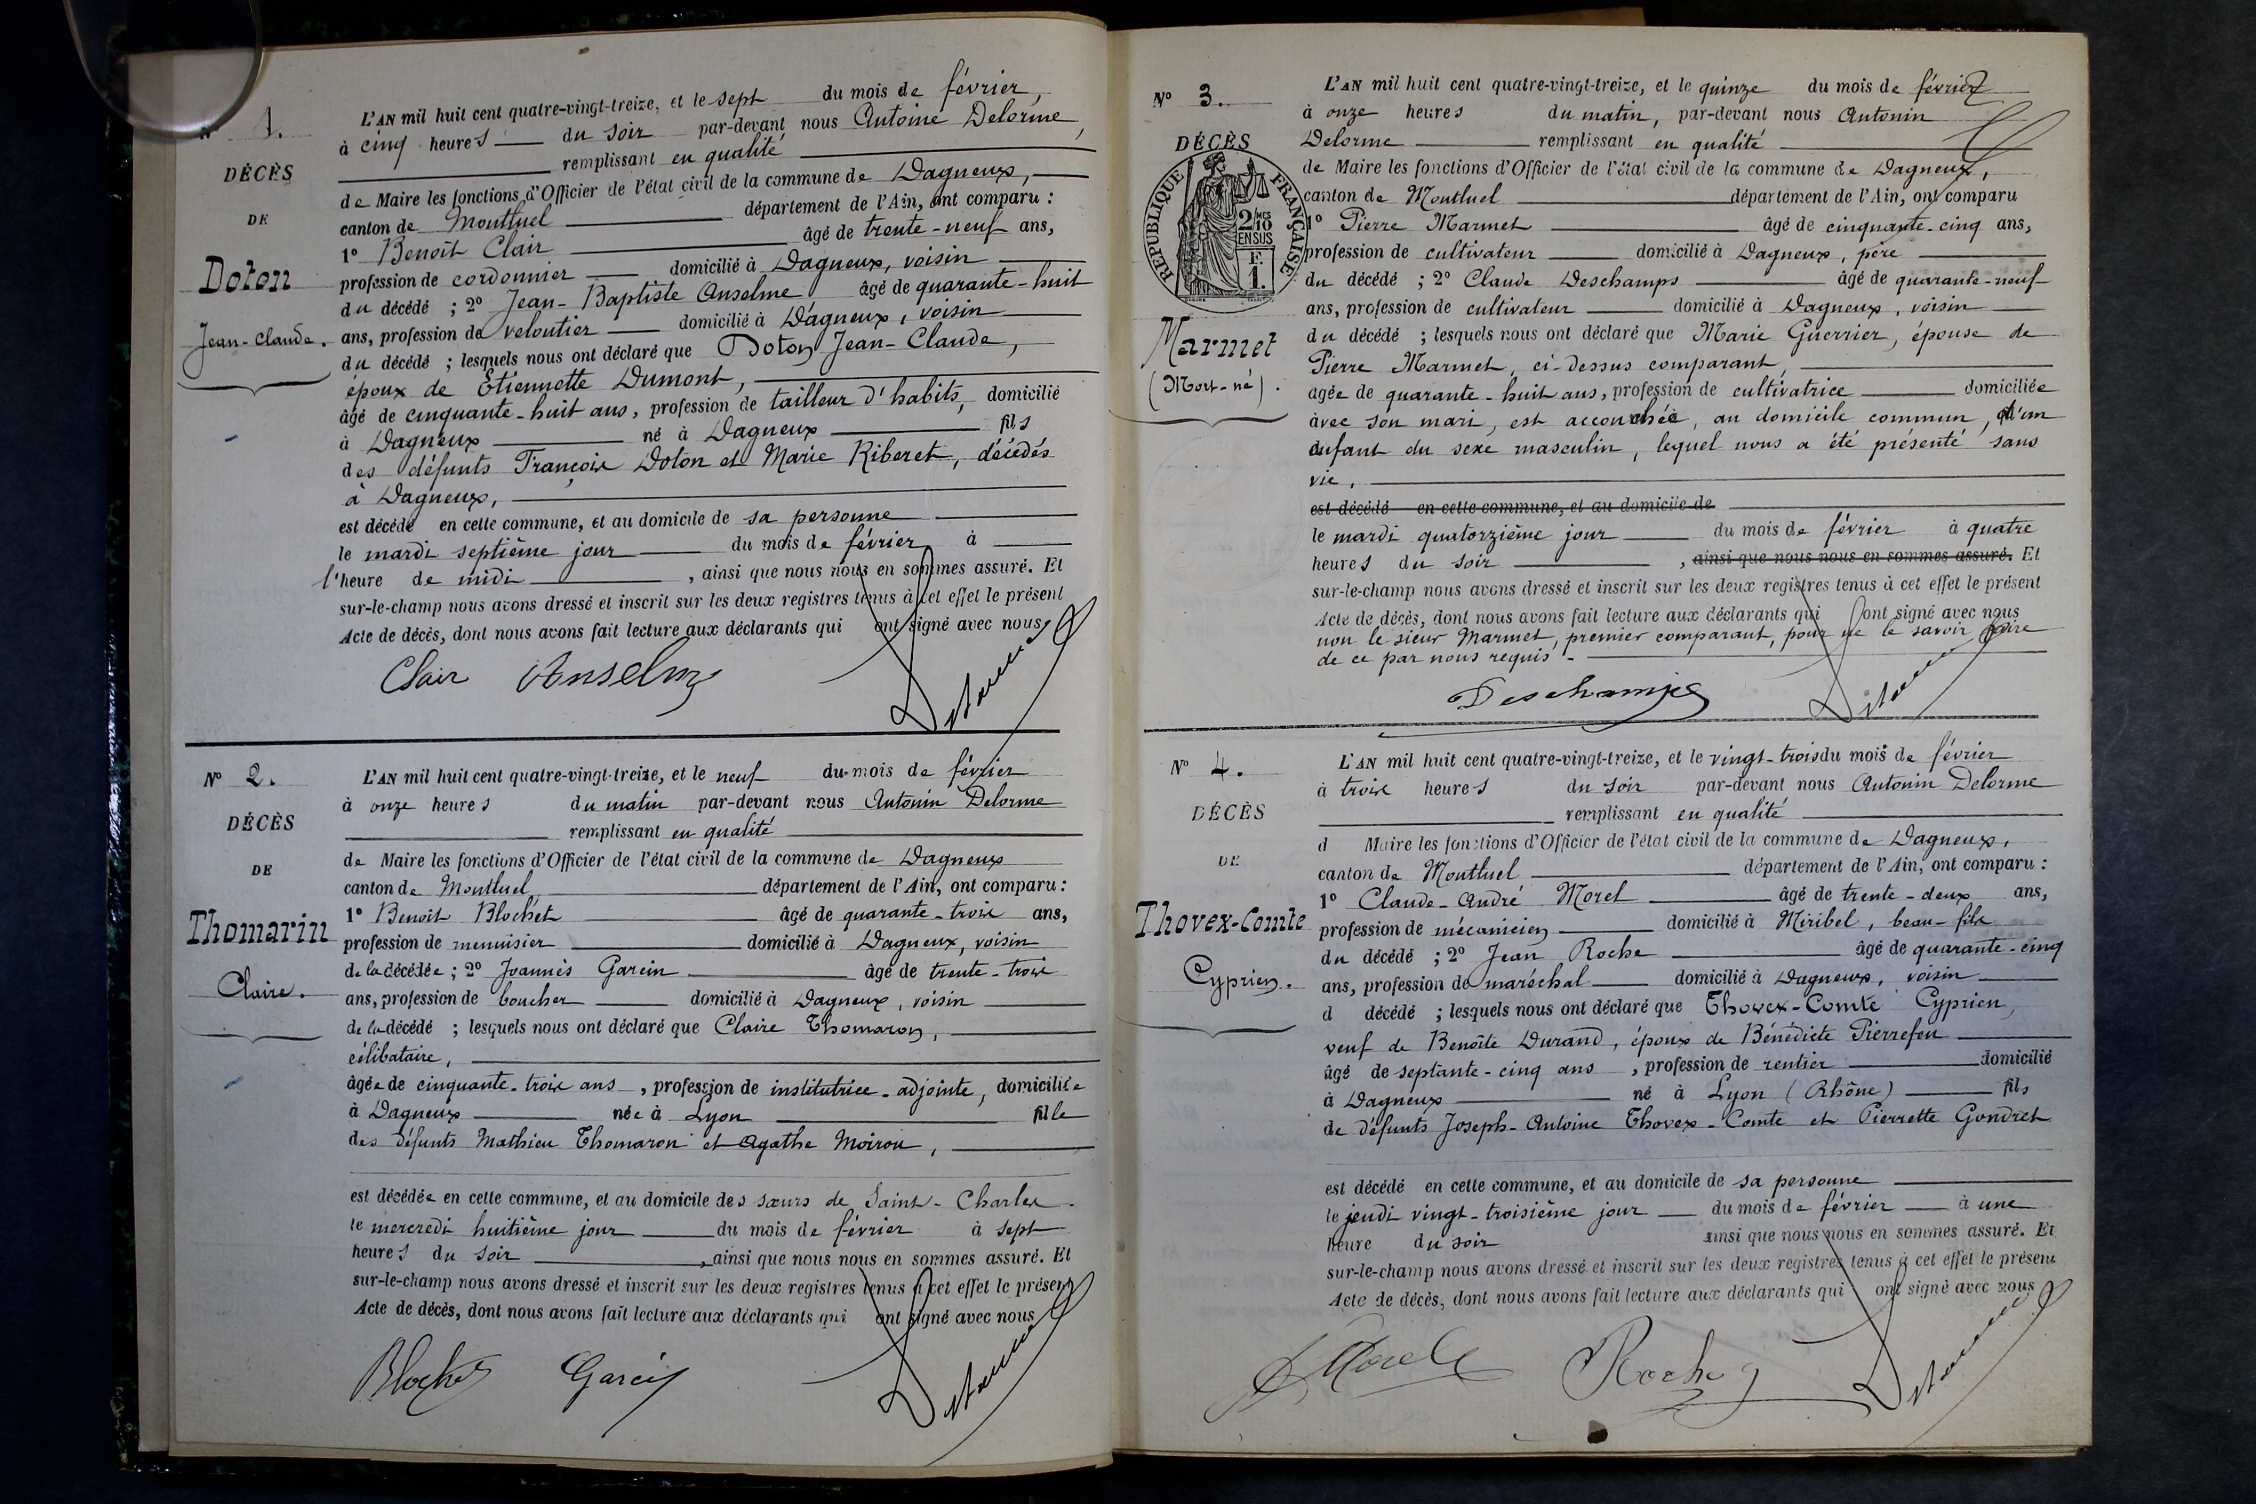 Nº 1.
DÉCÈS
DE
Doton
Jean-Claude.
L'AN mil huit cent quatre-vingt-treize, et le sept du mois de février,
à cinq heures du soir par-devant nous Antoine Delorme,
remplissant en qualité
de Maire les fonctions d'Officier de l'état civil de la commune de Dagneux,
canton de Montluel département de l'Ain, ont comparu :
1º Benoît Clair âgé de trente-neuf ans,
profession de cordonnier domicilié à Dagneux, voisin
du décédé ; 2º Jean-Baptiste Anselme âgé de quarante-huit
ans, profession de veloutier domicilié à Dagneux, voisin
du décédé ; lesquels nous ont déclaré que Doton Jean-Claude,
époux de Etiennette Dumont,
âgé de cinquante-huit ans, profession de tailleur d'habits, domicilié
à Dagneux né à Dagneux fils
des défunts François Doton et Marie Riberet, décédés
à Dagneux,
est décédé en cette commune, et au domicile de sa personne
le mardi septième jour du mois de février à
l'heure de midi , ainsi que nous nous en sommes assuré. Et
sur-le-champ nous avons dressé et inscrit sur les deux registres tenus à cet effet le présent
Acte de décès, dont nous avons fait lecture aux déclarants qui ont signé avec nous
Clair Anselme Delorme
Nº 2.
DÉCÈS
DE
Thomarin
Claire.
L'AN mil huit cent quatre-vingt-treize, et le neuf du mois de février
à onze heures du matin par-devant nous Antonin Delorme
remplissant en qualité
de Maire les fonctions d'Officier de l'état civil de la commune de Dagneux
canton de Montluel, département de l'Ain, ont comparu :
1º Benoît Blochet âgé de quarante-trois ans,
profession de menuisier domicilié à Dagneux, voisin
de la décédée ; 2º Joannès Garcin âgé de trente-trois
ans, profession de boucher domicilié à Dagneux, voisin
de la décédé ; lesquels nous ont déclaré que Claire Thomaron,
célibataire,
âgée de cinquante-trois ans, profession de institutrice-adjointe, domiciliée
à Dagneux née à Lyon fille
des défunts Mathieu Thomaron et Agathe Moirou,
est décédée en cette commune, et au domicile des sœurs de Saint-Charles
le mercredi huitième jour du mois de février à sept
heures du soir , ainsi que nous nous en sommes assuré. Et
sur-le-champ nous avons dressé et inscrit sur les deux registres tenus à cet effet le présent
Acte de décès, dont nous avons fait lecture aux déclarants qui ont signé avec nous
Blochet Garcin Delorme
Nº 3.
DÉCÈS
RÉPUBLIQUE FRANÇAISE
2/10 MES
EN SUS
F.
1.
Marmet
(Mort-né).
L'AN mil huit cent quatre-vingt-treize, et le quinze du mois de février
à onze heures du matin, par-devant nous Antonin
Delorme remplissant en qualité
de Maire les fonctions d'Officier de l'état civil de la commune de Dagneux,
canton de Montluel département de l'Ain, ont comparu
1º Pierre Marmet âgé de cinquante-cinq ans,
profession de cultivateur domicilié à Dagneux, père
du décédé ; 2º Claude Deschamps âgé de quarante-neuf
ans, profession de cultivateur domicilié à Dagneux, voisin
du décédé ; lesquels nous ont déclaré que Marie Guerrier, épouse de
Pierre Marmet, ci-dessus comparant,
agée de quarante-huit ans, profession de cultivatrice domiciliée
avec son mari, est accouchée, au domicile commun, d'un
enfant du sexe masculin, lequel nous a été présenté sans
vie,
est décédé en cette commune, et au domicile de
le mardi quatorzième jour du mois de février à quatre
heures du soir , ainsi que nous nous en sommes assuré. Et
sur-le-champ nous avons dressé et inscrit sur les deux registres tenus à cet effet le présent
Acte de décès, dont nous avons fait lecture aux déclarants qui ont signé avec nous
non le sieur Marmet, premier comparant, pour ne le savoir faire
de ce par nous requis.
Deschamps Delorme
Nº 4.
DÉCÈS
DE
Thovex-Comte
Cyprien.
L'AN mil huit cent quatre-vingt-treize, et le vingt-trois du mois de février
à trois heures du soir par-devant nous Antonin Delorme
remplissant en qualité
d Maire les fonctions d'Officier de l'état civil de la commune de Dagneux,
canton de Montluel département de l'Ain, ont comparu :
1º Claude-André Morel âgé de trente-deux ans,
profession de mécanicien domicilié à Miribel, beau-fils
du décédé ; 2º Jean Roche âgé de quarante-cinq
ans, profession de maréchal domicilié à Dagneux, voisin
d décédé ; lesquels nous ont déclaré que Thovex-Comte Cyprien,
veuf de Benoîte Durand, époux de Bénédicte Pierrefeu
âgé de septante-cinq ans, profession de rentier domicilié
à Dagneux né à Lyon (Rhône) fils
de défunts Joseph-Antoine Thovex-Comte et Pierrette Gondret
est décédé en cette commune, et au domicile de sa personne
le jeudi vingt-troisième jour du mois de février à une
heure du soir ainsi que nous nous en sommes assuré. Et
sur-le-champ nous avons dressé et inscrit sur les deux registres tenus à cet effet le présent
Acte de décès, dont nous avons fait lecture aux déclarants qui ont signé avec nous
Morel Roche Delorme